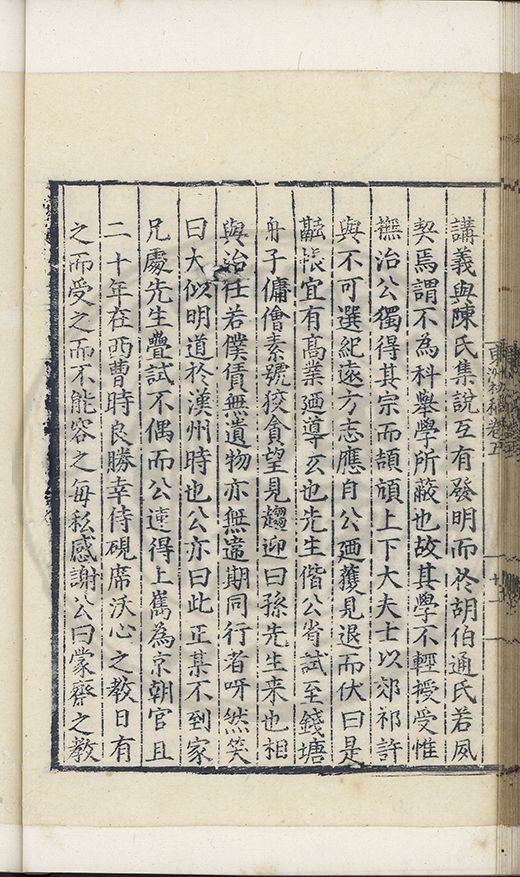 講義與陳氏集說互有發明而於胡伯通氏若夙
契焉謂不為科舉學所蔽也故其學不輕授受惟
撫治公獨得其宗而頡頏上下大夫士以郊祁許
與不可選紀遠方志應自公廼獲見退而伏曰是
齡悵宜有高業廼導云也先生偕公省試至錢塘
舟子傭儈素號狡貪望見趨迎曰孫先生来也相
與治任若僕債無遺物亦無違期同行者呀然笑
曰大似明道於漢州時也公亦曰此正某不到家
兄處先生疊試不偶而公連得上雋為京朝官且
二十年在西曹時良勝幸侍硯席沃心之教日有
之而受之而不能容之每私感謝公曰蒙齋之教
東洲初稿卷五